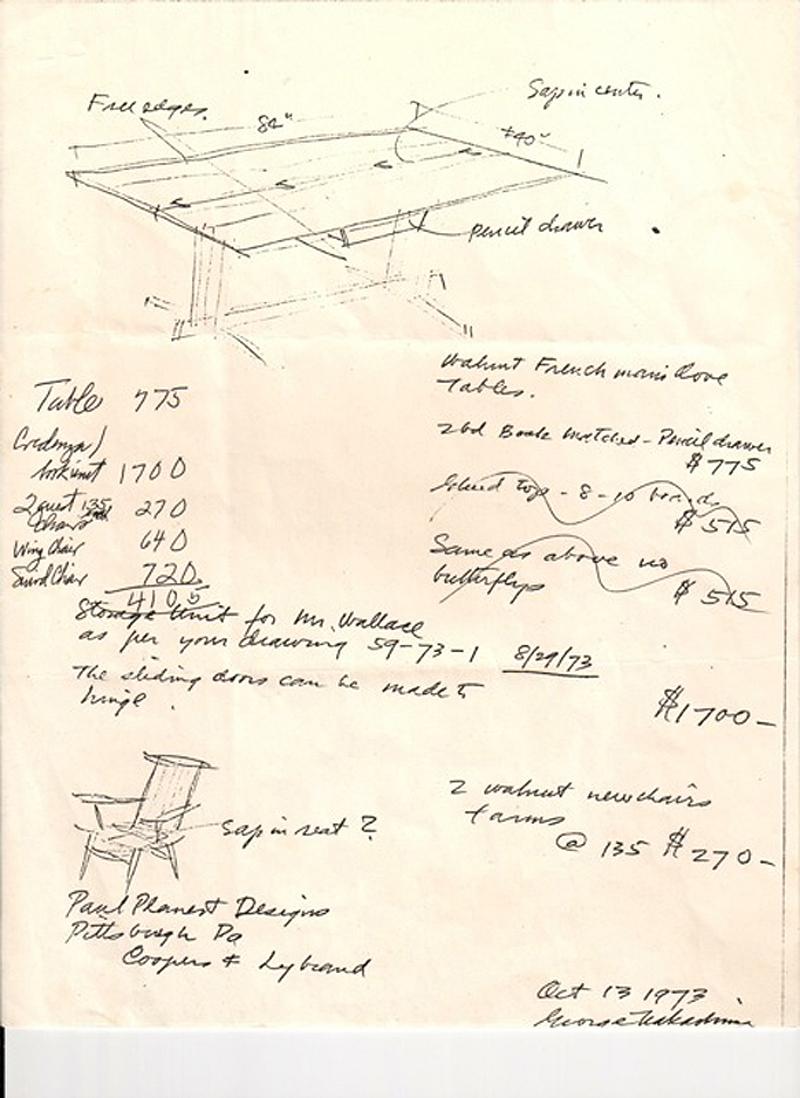 Free edges.
84"
Sap in center.
±40"
Pencil drawer
Table 775
Credenza/
1700
2 guest 135
chairs 270
Wing Chair 640
720
4105
Walnut French
Tables.
2bd Book matched - Pencil drawer
$775
Glued top - 8-10 boards
$515
Same as above no
butterflys $515
Storage Unit for Mr. Wallace
as per your drawing 59-73-1 8/29/73
The sliding doors can be made to
hinge.
$1700-
Sap in seat?
2 walnut newchairs
+ arms
@ 135 $270-
Paul Planert Designs
Pittsburgh Pa
Coopers & Lybrand
Oct 13 1973
George Nakashima